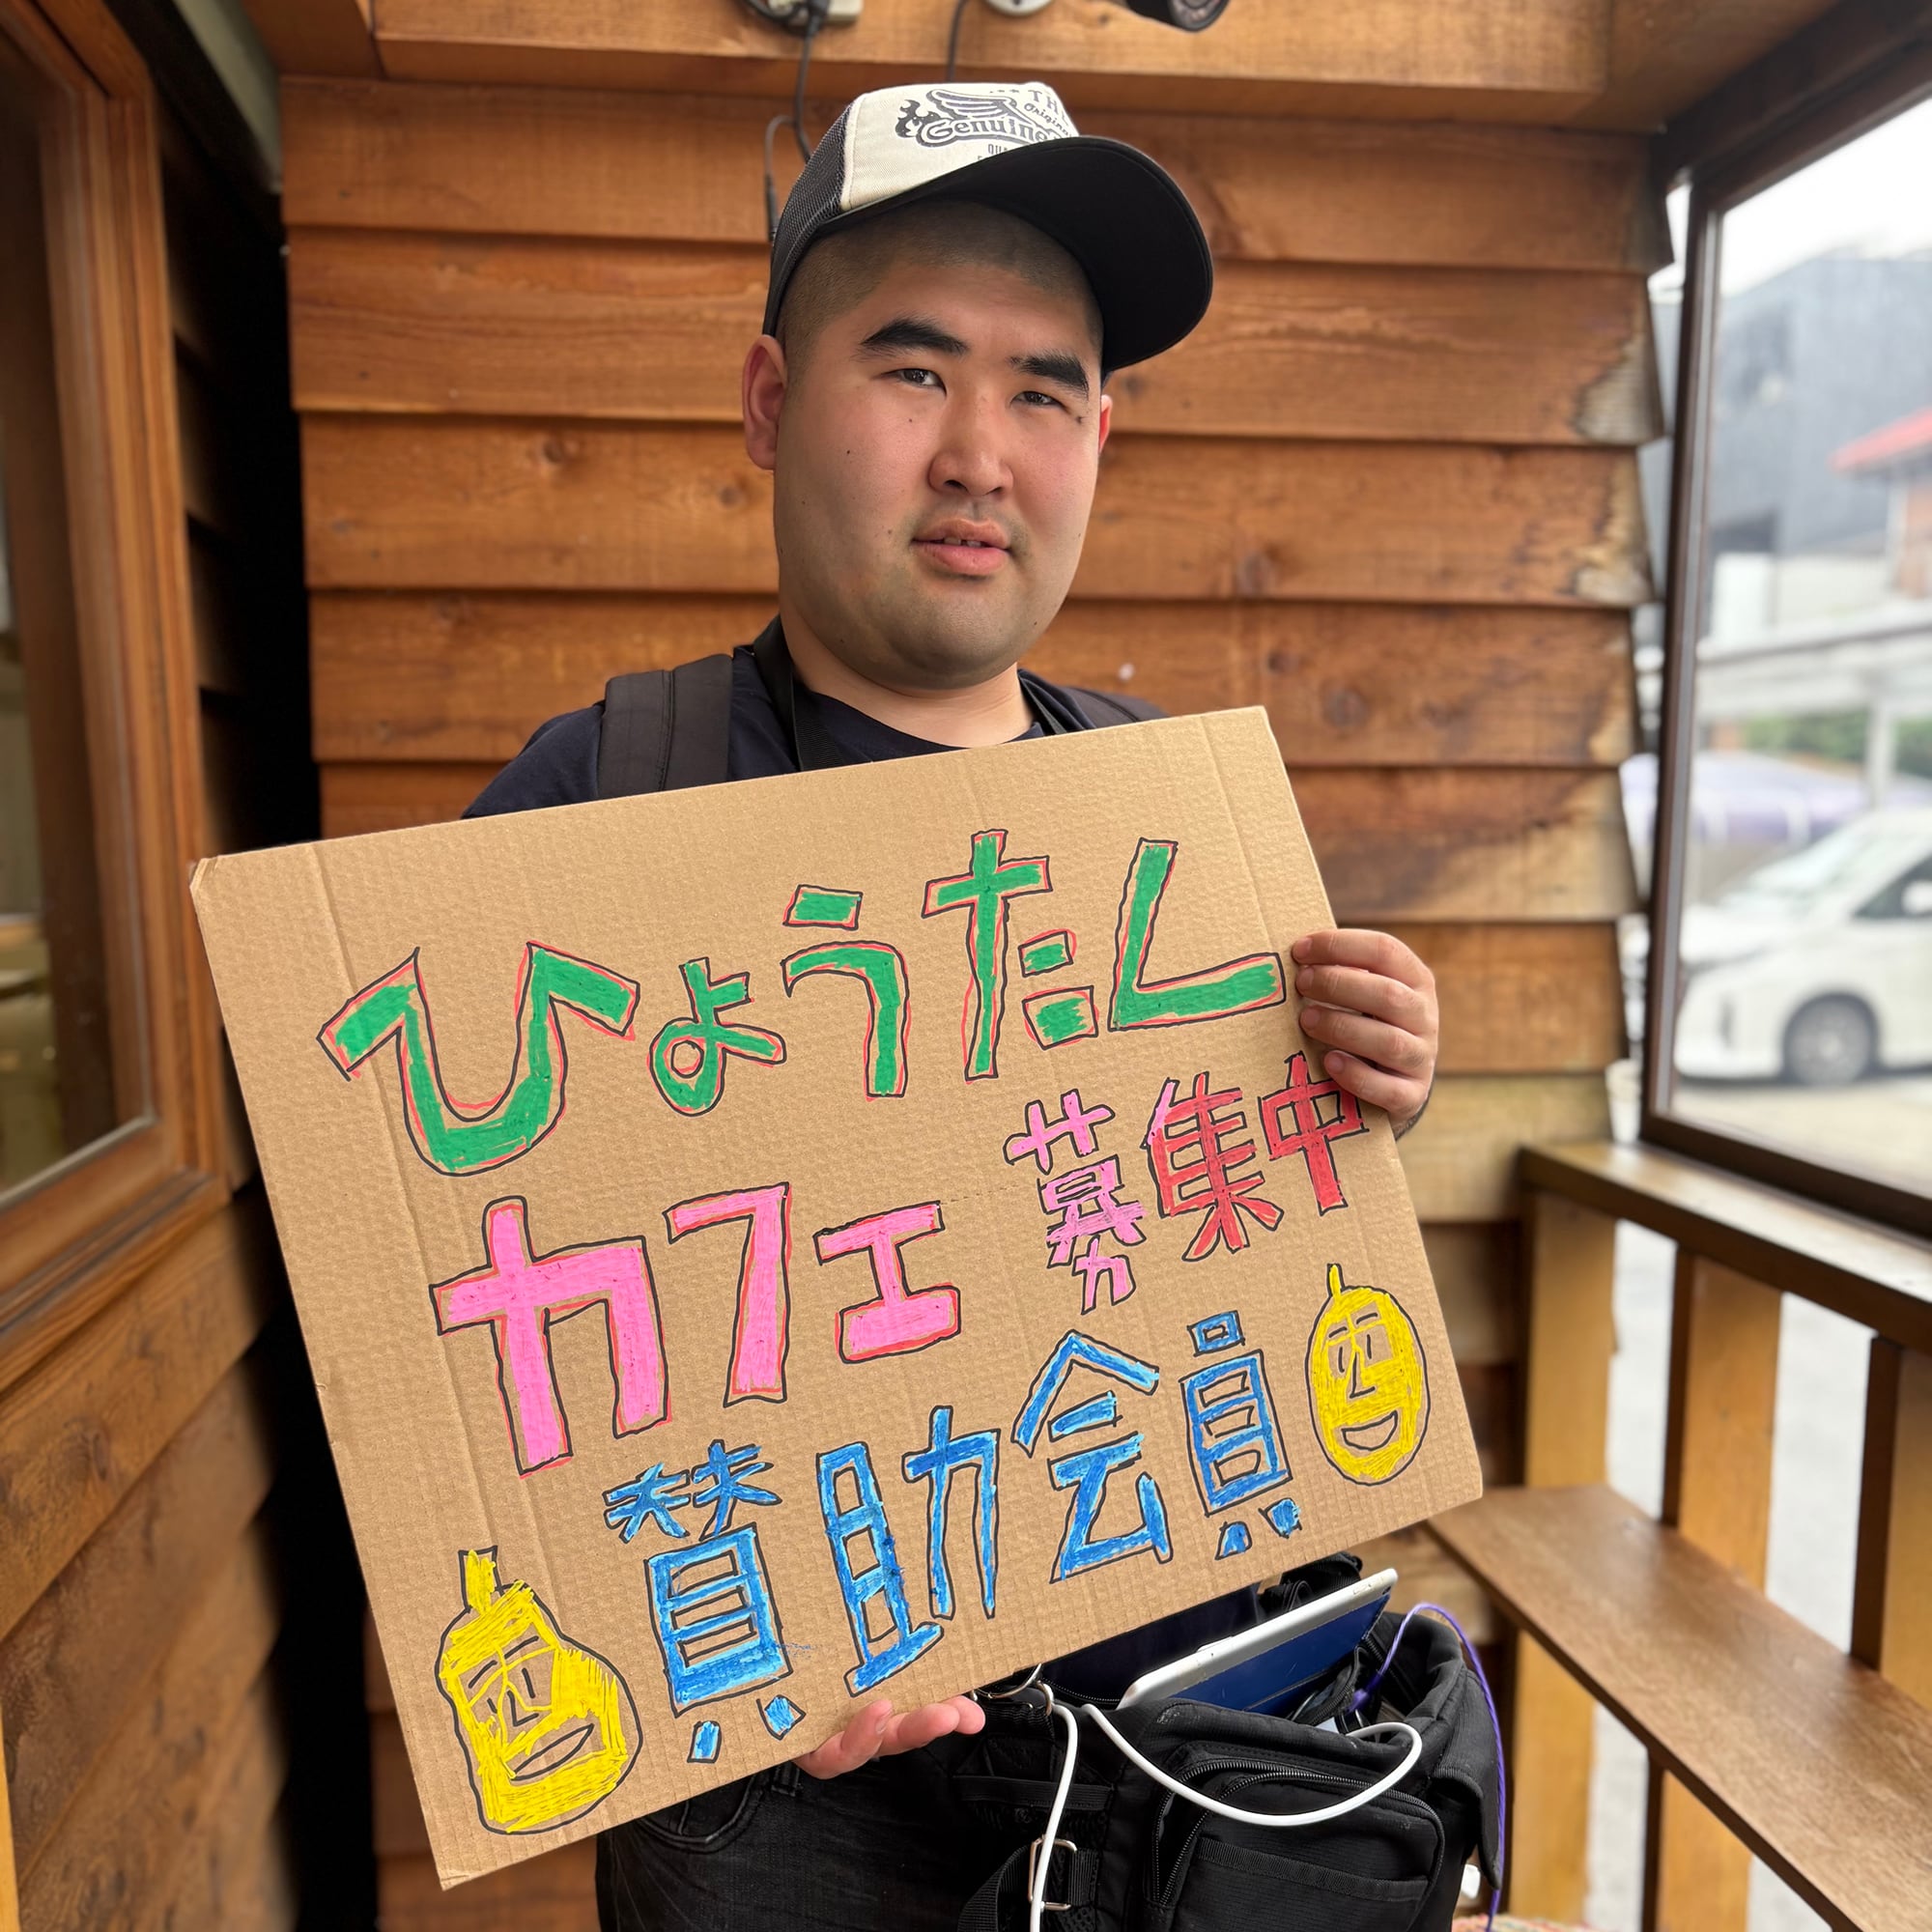 THE
Original
Genuine
ひょうたん
カフェ
募集中
賛助会員